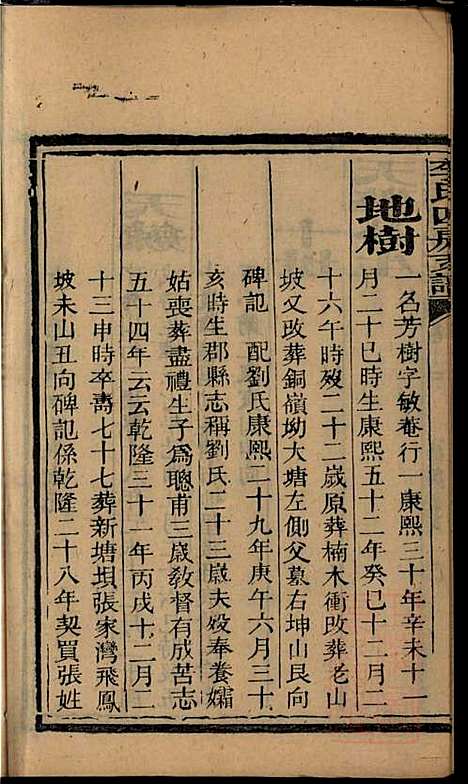 李氏四房系譜
地樹
一名芳樹字敏菴行一康熙三十年辛未十一
月二十巳時生康熙五十二年癸巳十二月二
十六午時歿二十二歲原葬楠木衝改葬老山
坡又改葬銅嶺坳大塘左側父墓右坤山艮向
碑記 配劉氏康熙二十九年庚午六月三十
亥時生郡縣志稱劉氏二十三歲夫歿奉養孀
姑喪葬盡禮生子爲聰甫三歲敎督有成苦志
五十四年云云乾隆三十一年丙戌十二月二
十三申時卒壽七十七葬新塘垻張家灣飛鳳
坡未山丑向碑記係乾隆二十八年契買張姓